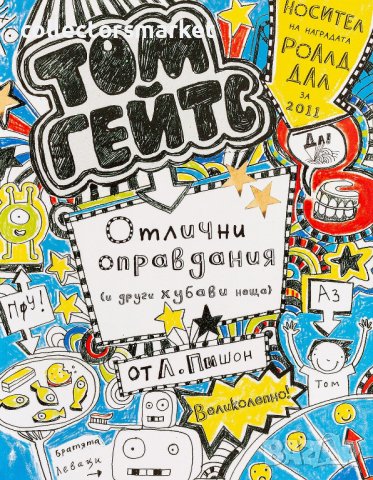 codectorsmarket
НОСИТЕЛ
НА НАГРАДАТА
РОАЛД
ДАЛ
ЗА
2011
ТОМ
ГЕЙТС
ДА!
Отлични
оправдания
(и други хубави неща)
ПФУ!
АЗ
ОТ Л. Пишон
Том
Великолепно!
Братята
Леваци
BAZAR